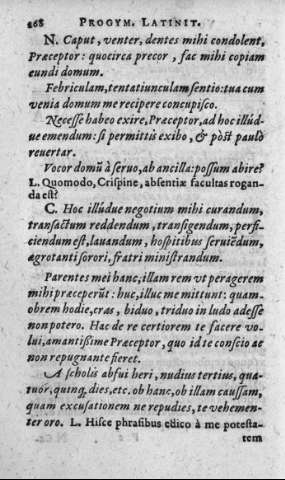 268 PROGYM. LATINIT.
N. Caput, venter, dentes mihi condolent,
Præceptor: quocirca precor, fac mihi copiam
eundi domum.
Febriculam, tentatiunculam sentio: tua cum
venia domum me recipere concupisco.
Necesse habeo exire, Præceptor, ad hoc illúd-
ue emendum: si permittis exibo, & pòst paulò
revertar.
Vocor domũ à seruo, ab ancilla: possum abire?
L. Quomodo, Crispine, absentiæ facultas rogan-
da est?
C. Hoc illúdue negotium mihi curandum,
transactum reddendum, transigendum, perfi-
ciendum est, lauandum, hospitibus seruiẽdum,
ægrotanti sorori, fratri ministrandum.
Parentes mei hanc, illam rem vt peragerem
mihi præceperũt: huc, illuc me mittunt: quam-
obrem hodie, cras, biduo, triduo in ludo adesse
non potero. Hac de re certiorem te facere vo-
lui, amantißime Præceptor, quo id te conscio ac
non repugnante fieret.
A scholis abfui heri, nudius tertius, qua-
tuor, quinq; dies, etc. ob hanc, ob illam caussam,
quam excusationem ne repudies, te vehemen-
ter oro. L. Hisce phrasibus edico à me potesta-
tem